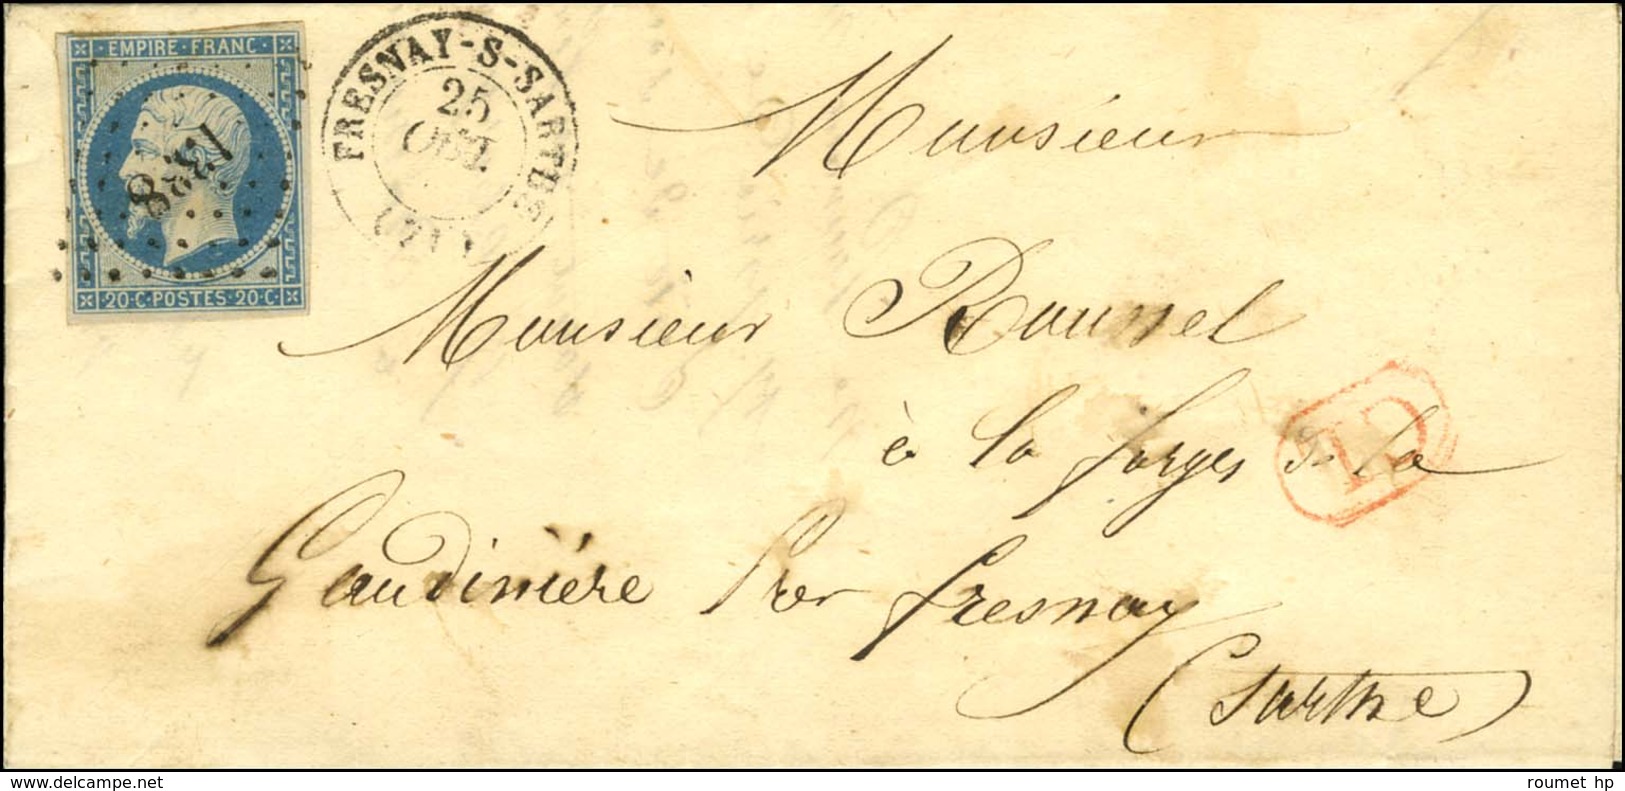 EMPIRE · FRANC ·
1338
20 · C · POSTES · 20 · C ·
FRESNAY-S-SARTHE
25
OCT.
Monsieur
Monsieur Roussel
à la forges de la
PD
Gaudinière Par fresnay
(Sarthe)
www.delcampe.net
roumet hp